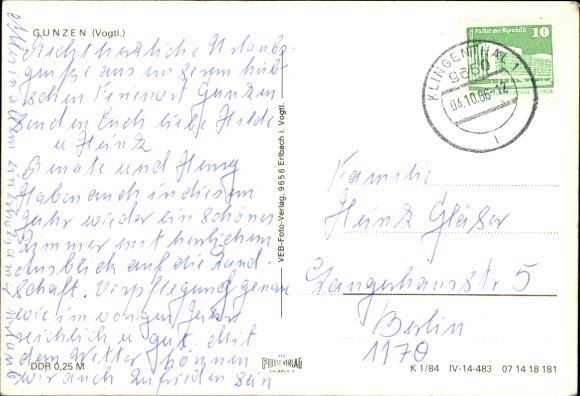 GUNZEN (Vogtl.)
Recht herzliche Urlaubs-
grüße aus unserem hüb-
schen Ferienort Gunzen
senden Euch liebe Hilde
u Heinz
Renate und Henry
Haben auch in diesem
Jahr wieder ein schönes
Zimmer mit herrlichem
Ausblick auf die Land-
schaft. Verpflegung genau
wie im vorigen Jahr
reichlich u gut. Mit
dem Wetter können
wir auch zufrieden sein
Alles in allem ein erholsamer Urlaub
DDR 0,25 M
VEB-Foto-Verlag, 9658 Erlbach i. Vogtl.
VEB
FOTO VERLAG
ERLBACH V.
Palast der Republik 10
KLINGENTHAL 1
9650
04.10.86-12
Familie
Heinz Gläser
Langerhansstr 5
Berlin
1170
K 1/84 IV-14-483 07 14 18 181